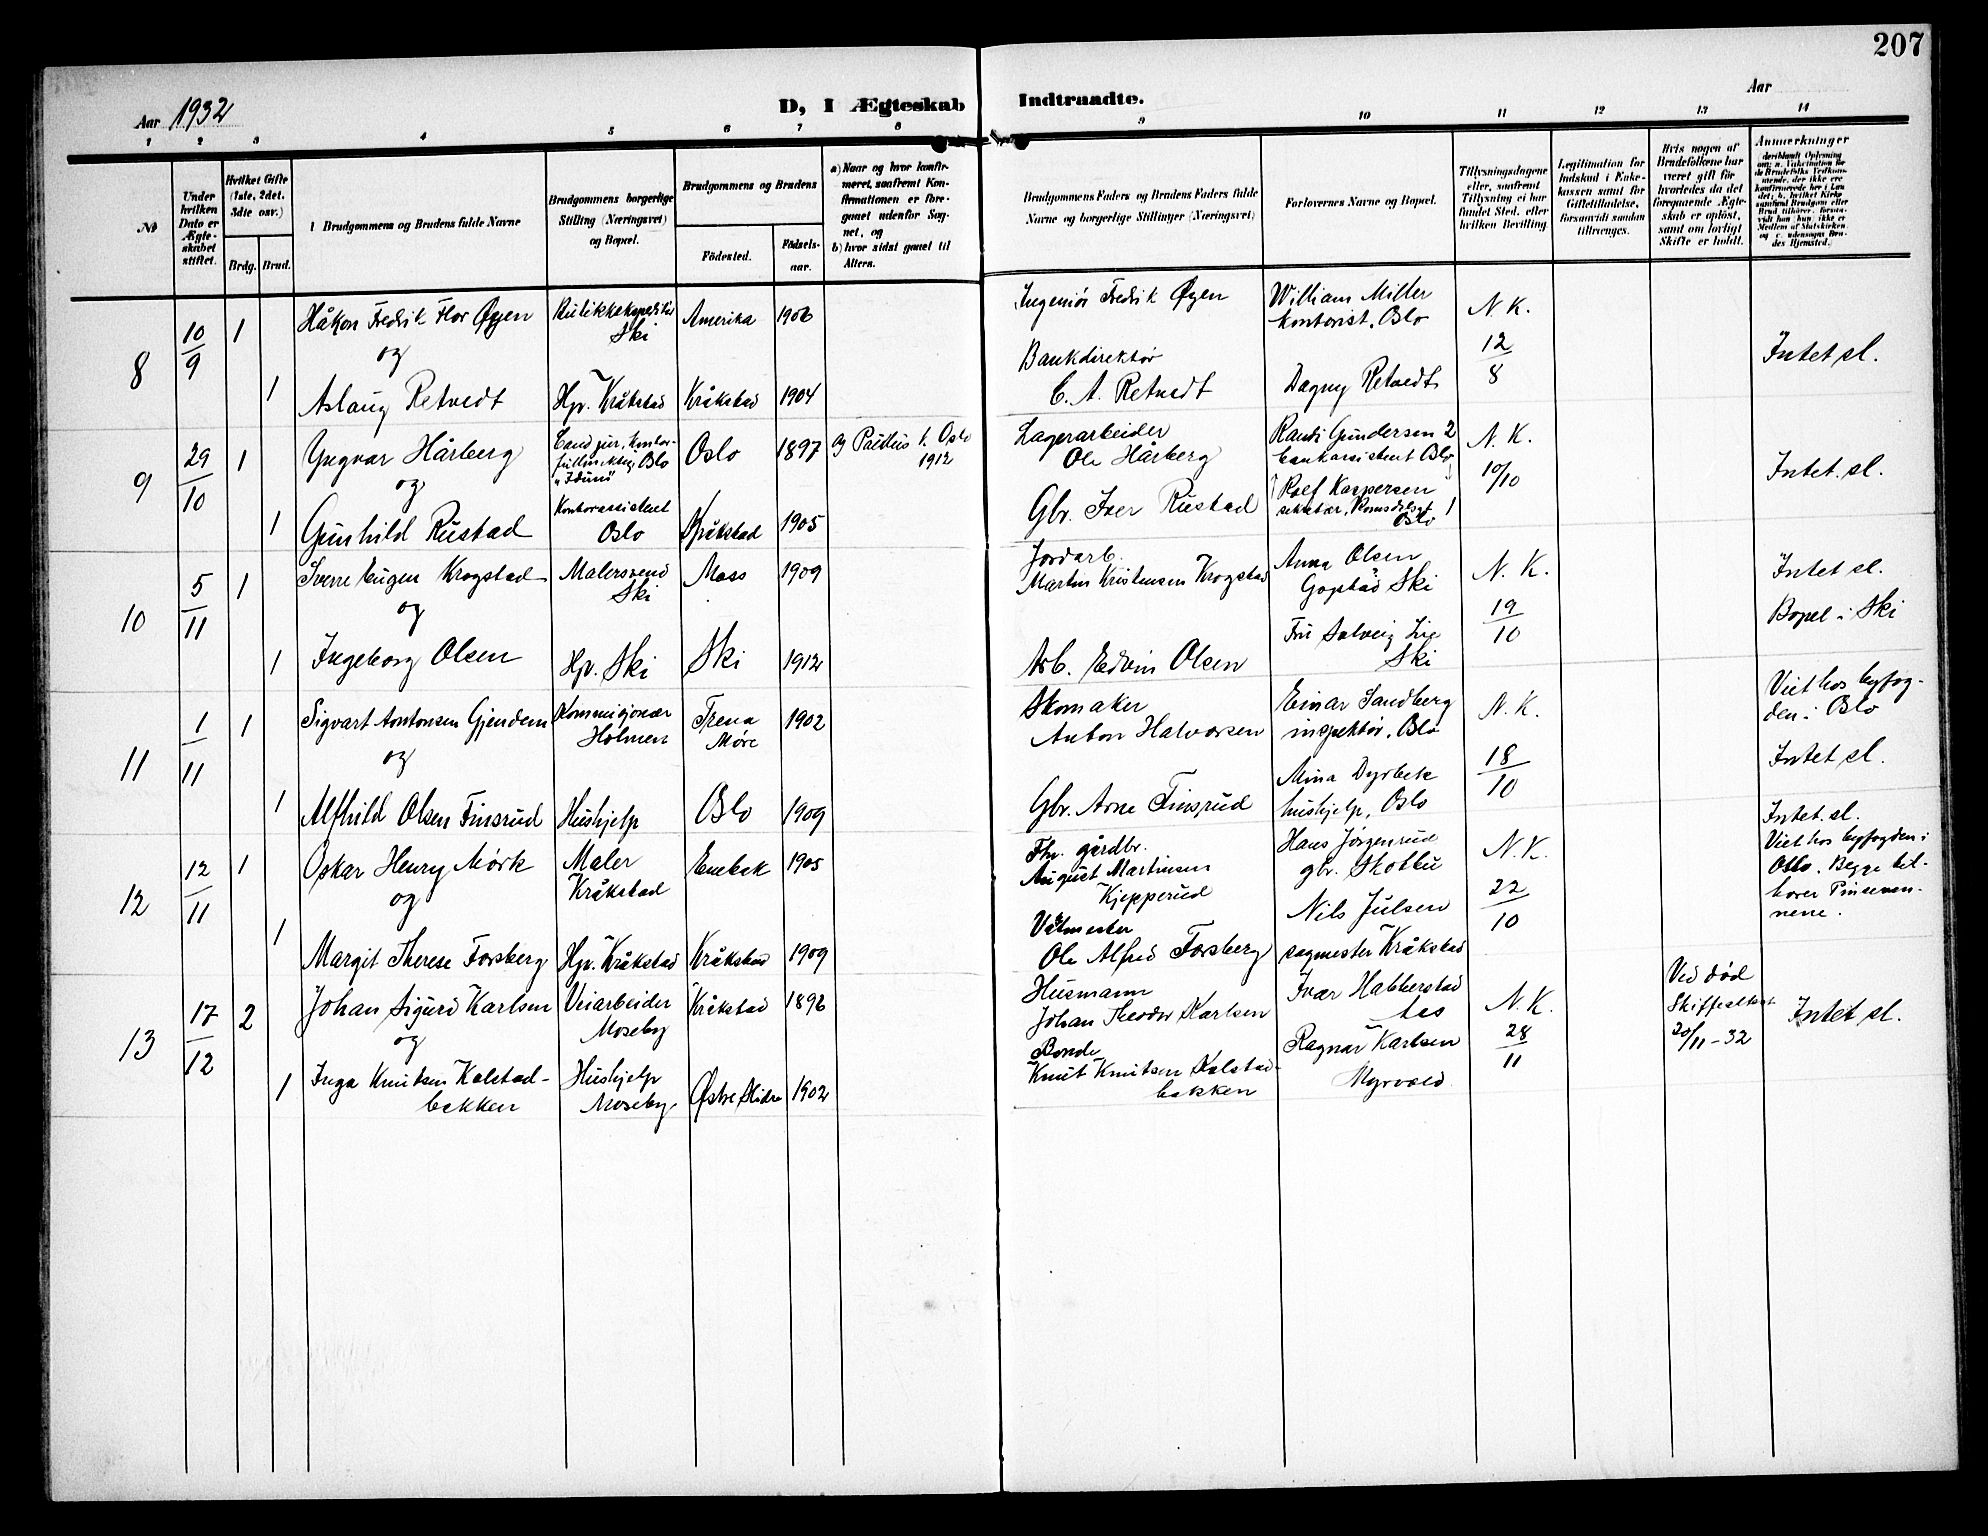 207
Aar 1932
D, I Ægteskab Indtraadte.
Aar
1 2 3 4 5 6 7 8 9 10 11 12 13 14
№
Under hvilken Dato er Ægteskabet stiftet.
Hvilket Gifte (1ste, 2det, 3die osv.)
Brdg. Brud.
Brudgommens og Brudens fulde Navne
Brudgommens borgerlige Stilling (Næringsvei) og Bopæl.
Brudgommens og Brudens
Fødested.
Fødselsaar.
a) Naar og hvor konfirmeret, saafremt Konfirmationen er foregaaet udenfor Sognet, og
b) hvor sidst gaaet til Alters.
Brudgommens Faders og Brudens Faders fulde Navne og borgerlige Stillinger (Næringsvei)
Forlovernes Navne og Bopæl.
Tillysningsdagene eller, saafremt Tillysning ei har fundet Sted, efter hvilken Bevilling.
Legitimation for Indskud i Enkekassen samt for Giftetilladelse, forsaavidt saadan tiltrænges.
Hvis nogen af Brudefolkene har været gift før hvorledes da det foregaaende Ægteskab er opløst, samt om lovligt Skifte er holdt.
Anmerkninger
8
10/9
1
Håkon Fredrik Flor Øyen
Ski
Amerika
1906
Ingeniør Fredrik Øyen
William Miller
kontorist, Oslo
N. K.
12/8
Intet sl.
og
1
Aslaug Retvedt
Hjv. Kråkstad
Kråkstad
1904
Bankdirektør
C. A. Retvedt
Dagny Retvedt
9
29/10
1
Yngvar Hårberg
Cand. jur. kontor-
fullmektig, Oslo
"Idun"
Oslo
1897
a) Paulus k. Oslo
1912
Lagerarbeider
Ole Hårberg
Randi Gundersen 2
bankassistent Oslo
N. K.
10/10
Intet sl.
og
1
Gunhild Rustad
Kontorassistent
Oslo
Kråkstad
1905
Gbr. Iver Rustad
Rolf Kaspersen
sekretær, Romsdalsgt
Oslo 1
10
5/11
1
Sverre Eugen Krogstad
Malersvend
Ski
Moss
1909
Jordarb.
Martin Kristensen Krogstad
Anna Olsen
Ski
N. K.
19/10
Intet sl.
Bopel i Ski
og
1
Ingeborg Olsen
Hjv. Ski
Ski
1912
Arb. Edvin Olsen
Fru Solveig Lie
Ski
11
1/11
1
Sigvart Antonsen Gjendem
Kommisjonær
Holmen
Møre
1902
Skomaker
Anton Halvorsen
Einar Sandberg
inspektør, Oslo
N. K.
18/10
Viet hos byfog-
den i Oslo
Intet sl.
og
1
Alfhild Olsen Finsrud
Hushjelp
Oslo
1909
Gbr. Arne Finsrud
Mina Dyrbek
hushjelp, Oslo
12
12/11
1
Oskar Henry Mørk
Maler
Kråkstad
Enebak
1905
Fhv. gårdbr.
August Martinsen
Kjepperud
Hans Jørgenrud
gbr. Skotbu
N. K.
22/10
Intet. sl.
Viet hos byfogden i
Oslo. Begge til-
hører Pinseven-
nene.
og
1
Margit Therese Forsberg
Hjv. Kråkstad
Kråkstad
1909
Ole Alfred Forsberg
Nils Julsen
sagmester Kråkstad
13
17/12
2
Johan Sigurd Karlsen
Veiarbeider
Moseby
Kråkstad
1896
Husmann
Johan Theodor Karlsen
Ivar Habberstad
Aas
N. K.
28/11
Ved død
Skifteattest
20/11-32
Intet sl.
og
1
Inga Knutsen Kolstad-
bakken
Hushjelp
Moseby
Østre Slidre
1902
Bonde
Knut Knutsen Kolstad-
bakken
Ragnar Karlsen
Myrvold